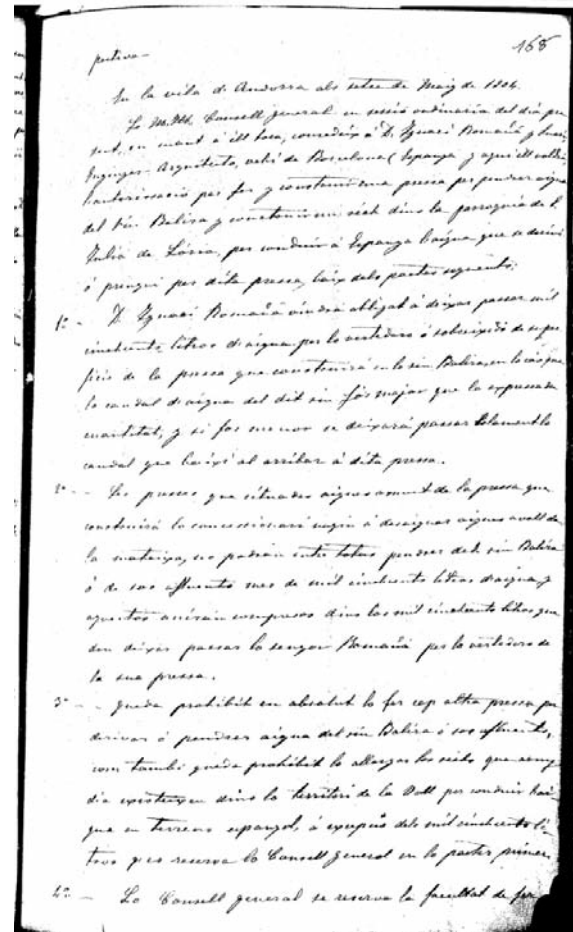 168
putiva-
En la vila d'Andorra als setse de Maig de 1904.
Lo M. Iltre. Consell general en sessió ordinaria del dia pre
sent, en mant á ill tosa, concedeix á D. Ignaci Romañá y
Enginyer-Arquitecto, vehí de Barcelona (Espanya y aquí
l'autorisació per fer y construir una pressa per pendrer aigua
del riu Balira y construir un rech dins la parroquia de S.
Juliá de Lória, per conduir á Espanya l'aigua que se derivi
ó prengui per dita pressa, baix dels pactes següents:
1º - D. Ignaci Romañá vindrá obligat á deixar passar mil
cinchcents litros d'aigua per lo vertedero ó sobreixidó de
ficie de la pressa que construirá en lo riu Balira, en lo cas que
lo caudal d'aigua del dit riu fos major que la expressada
cuantitat, y si fos menor se deixará passar totament lo
caudal que baixi al arribar á dita pressa.
2º - Les preses que situades aigues amunt de la pressa que
construirá lo concessionari vagin á desaiguar aigues avall de
la mateixa, no podrán entre totas pendrer del riu Balira
ó de sos afluents mes de mil cinchcents litros d'aigua y
aquestos anirán compresos dins los mil cinchcents litros que
deu deixar passar lo senyor Romañá per lo vertedero de
la sua pressa.
3º - Queda prohibit en absolut lo fer cap altra pressa per
derivar ó pendrer aigua del riu Balira ó sos afluents,
com també queda prohibit lo allargar los rechs que avuy
dia existeixen dins lo territori de la Vall per conduir l'ai
gua en terreno espanyol, á excepció dels mil cinchcents li
tros que reserva lo Consell general en lo pacte primer.
4º - Lo Consell general se reserva la facultat de fer